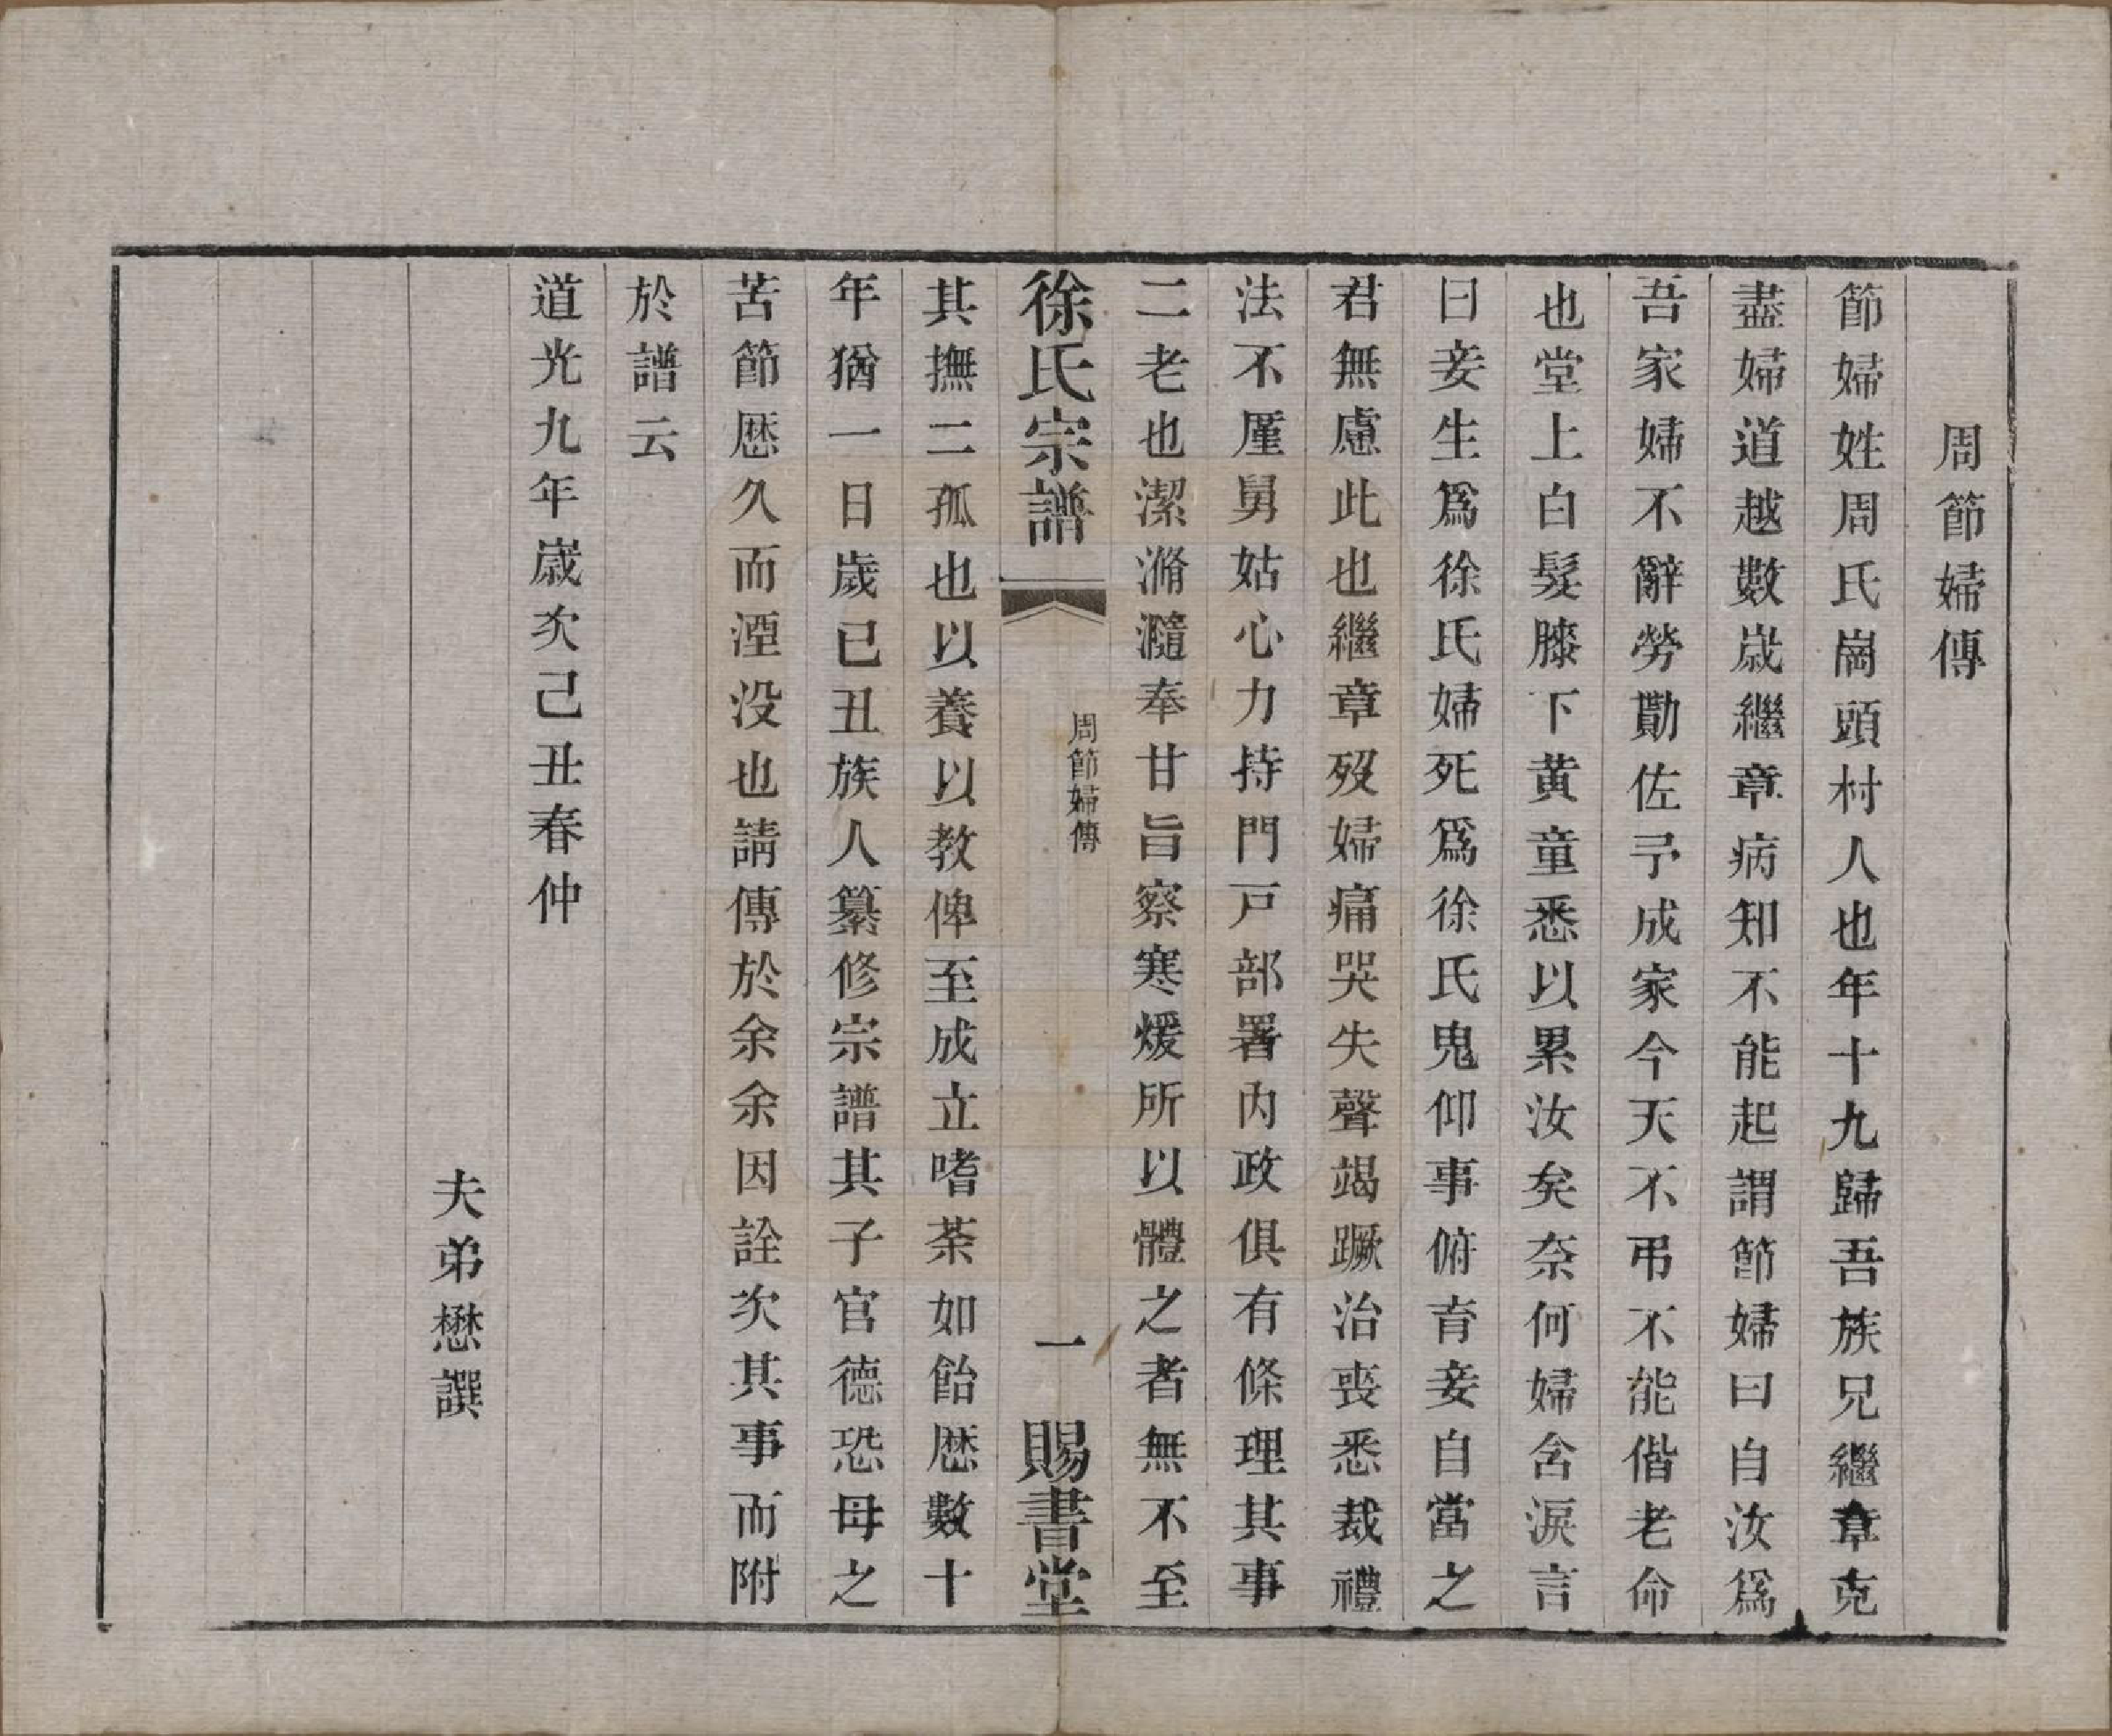 周節婦傳
節婦姓周氏崗頭村人也年十九歸吾族兄繼章克
盡婦道越數歳繼章病知不能起謂節婦曰自汝爲
吾家婦不辭勞勩佐予成家今天不弔不能偕老命
也堂上白髮膝下黄童悉以累汝矣奈何婦含淚言
曰妾生爲徐氏婦死爲徐氏鬼仰事俯育妾自當之
君無慮此也繼章歿婦痛哭失聲竭蹶治喪悉裁禮
法不厪舅姑心力持門戸部署内政俱有條理其事
二老也潔滫瀡奉甘旨察寒煖所以體之者無不至
徐氏宗譜
周節婦傳
一
賜書堂
其撫二孤也以養以教俾至成立嗜荼如飴厯數十
年猶一日歲已丑族人纂修宗譜其子官德恐母之
苦節厯久而湮没也請傳於余余因詮次其事而附
於譜云
道光九年歳次己丑春仲
夫弟懋譔